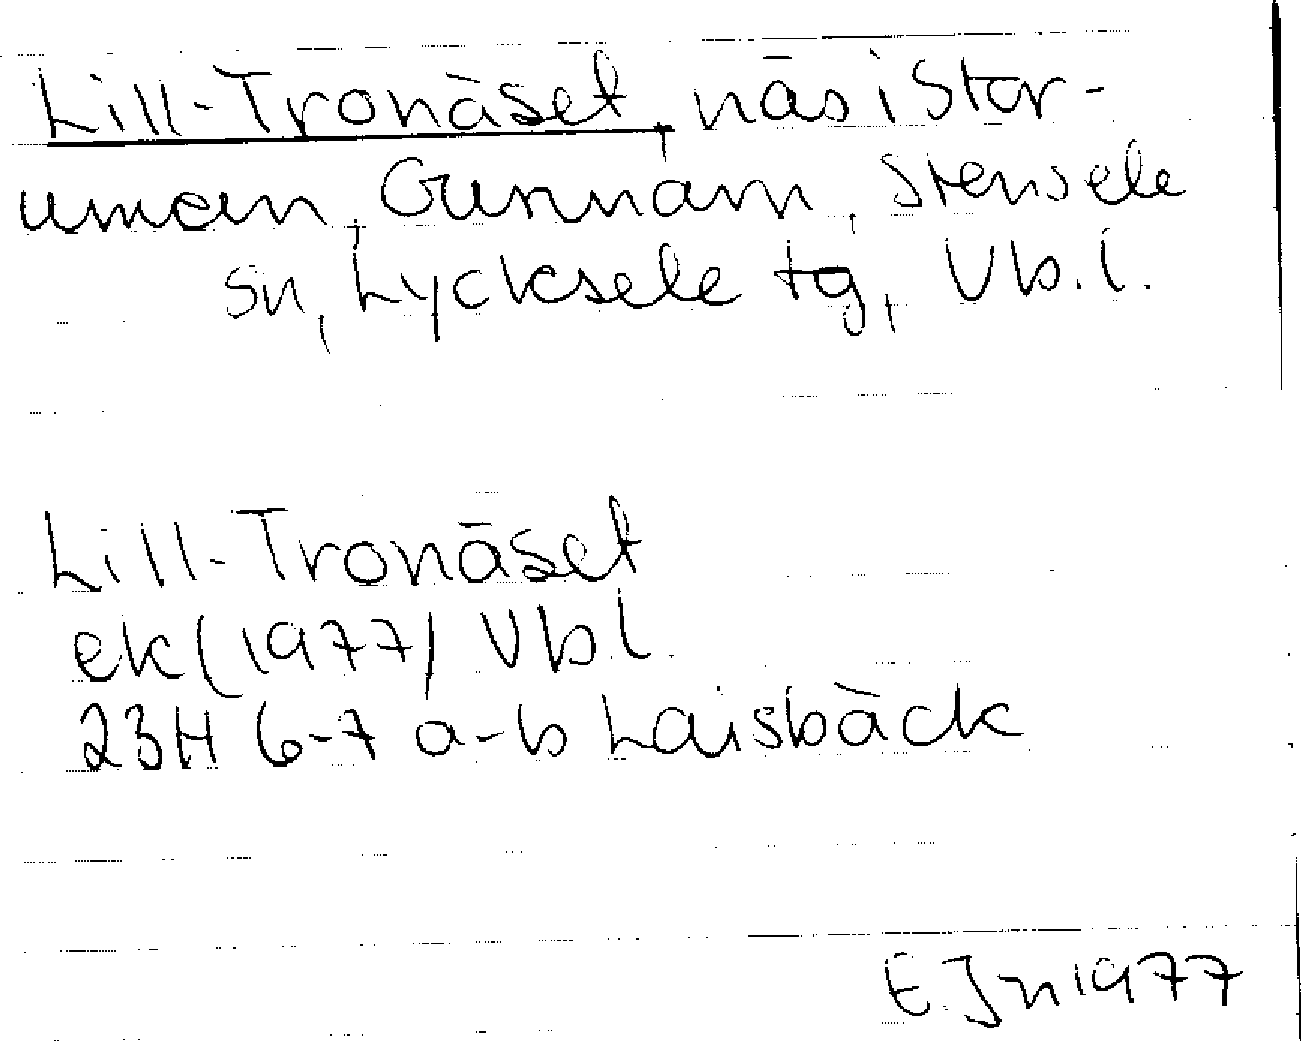 Lill-Tronäset, näs i Stor-
uman, Gunnarn, Stensele
sn, Lycksele tg, Vb.l.
Lill-Tronäset
ek (1977) Vb l.
23H 6-7 a-b Laisbäck
E. Jn 1977